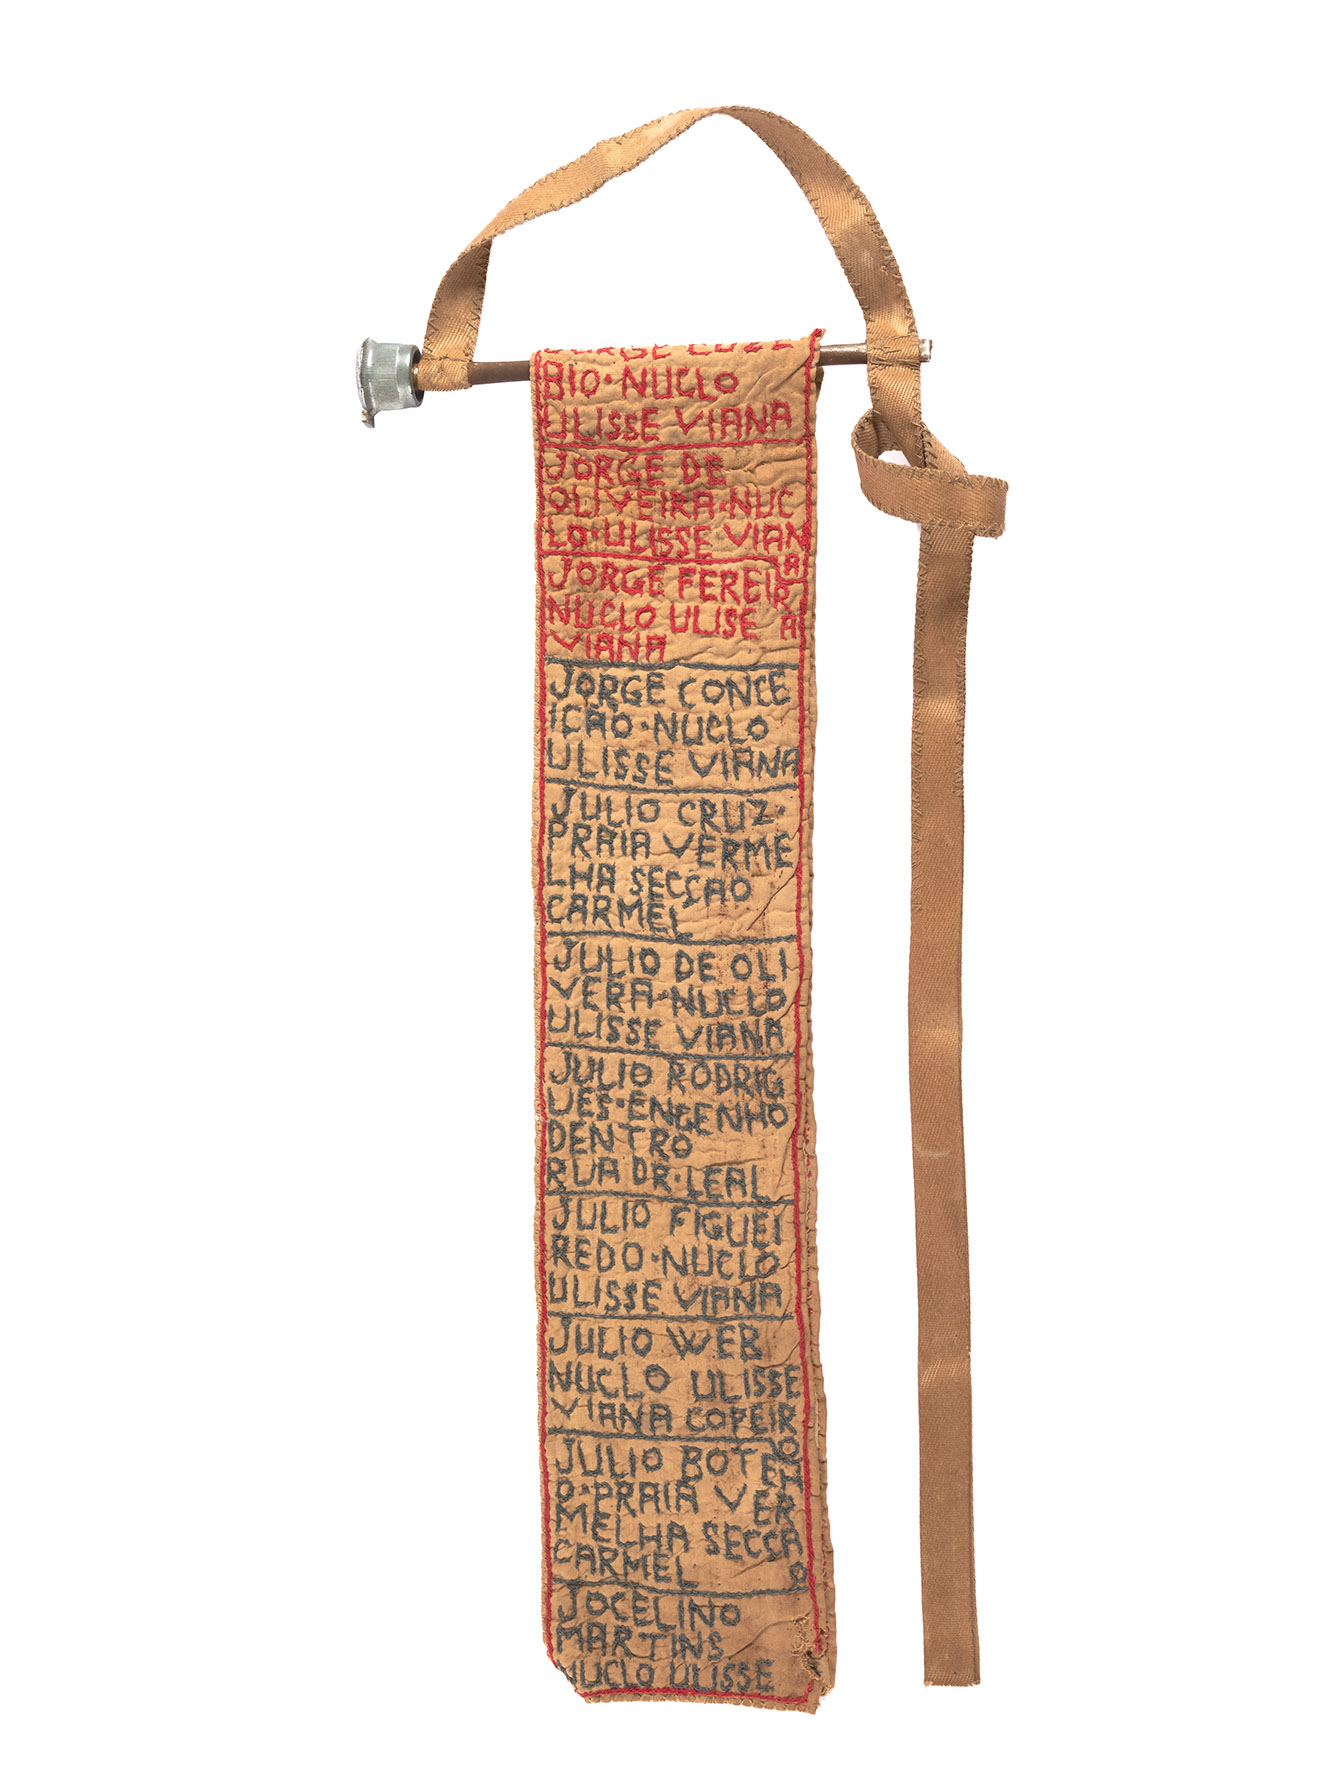 BIO·NUCLO
ULISSE VIANA
JORGE DE
OLIVEIRA·NUC
LO·ULISSE VIAN
A
JORGE FEREIR
NUCLO ULISE A
VIANA
JORGE CONCE
ICAO·NUCLO
ULISSE VIANA
JULIO CRUZ·
PRAIA VERME
LHA SECÇAO
CARMEL
JULIO DE OLI
VERA·NUCLO
ULISSE VIANA
JULIO RODRIG
UES·ENGENHO
DENTRO
RUA DR·LEAL
JULIO FIGUEI
REDO·NUCLO
ULISSE VIANA
JULIO WEB
NUCLO ULISSE
VIANA COPEIR
O
JULIO BOTELH
O·PRAIA VER
MELHA SECCA
CARMEL O
JOCELINO
MARTINS
NUCLO ULISSE